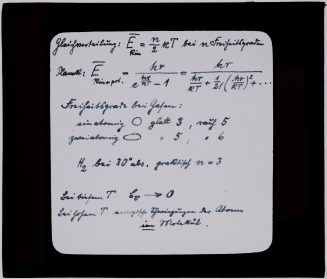 Gleichverteilung: Ē_kin = n/2 kT bei n Freiheitsgraden
Planck: Ē_kin+pot. = hν / (e^(hν/kT) − 1) = hν / (hν/kT + 1/2! (hν/kT)² + ...
Freiheitsgrade bei Gasen:
einatomig glatt 3, rauh 5
zweiatomig " 5, " 6
H₂ bei 30° abs. praktisch n = 3
bei tiefem T → 0
bei hohem T Schwingungen der Atome
im Molekül.